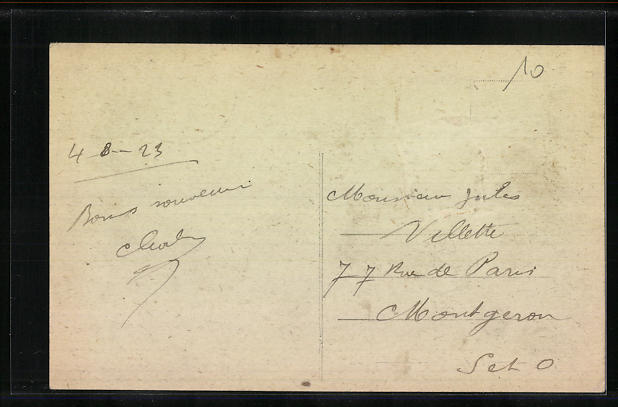 10
4 8 - 23
Bons souvenir
Monsieur Jules
Villette
77 Rue de Paris
Montgeron
Set O